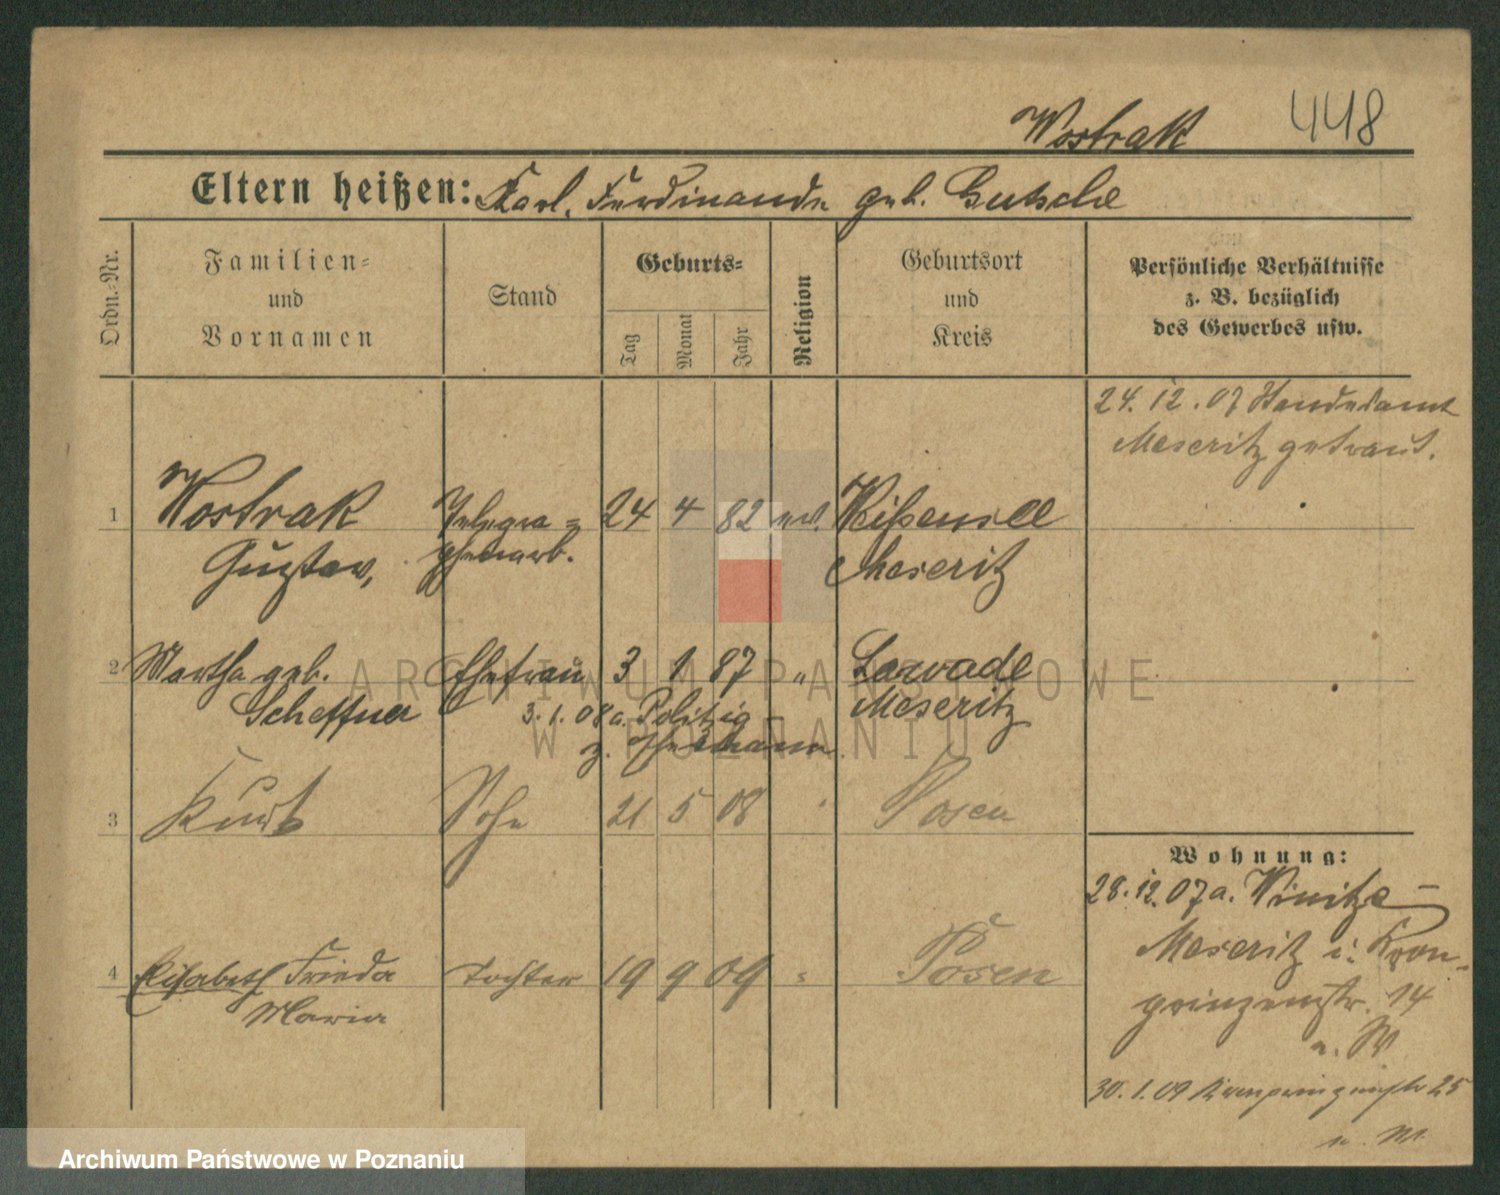 Wostrak 448
Eltern heißen: Karl, Ferdinande geb. Gutsche
Ordn.-Nr.
Familien-
und
Vornamen
Stand
Geburts-
Tag
Monat
Jahr
Religion
Geburtsort
und
Kreis
Persönliche Verhältnisse
z. B. bezüglich
des Gewerbes usw.
24. 12. 07 Standesamt
Meseritz getraut.
1 Wostrak Telegra= 24 4 82 ev.
Gustav, phenarb. Meseritz
2 Martha geb. Ehefrau 3 1 87 "
Scheffner 3. 1. 08 a. Politzig Meseritz
z. Ehemann
3 Kurt Sohn 21 5 08 " Posen
4 Elisabeth Frieda Tochter 19 9 09 " Posen
Maria
Wohnung:
28. 12. 07 a. Winitze -
Meseritz i. Kron-
prinzenstr. 14
30. 1. 09 Kronprinzenstr 25
ARCHIWUM PAŃSTWOWE
W POZNANIU
Archiwum Państwowe w Poznaniu